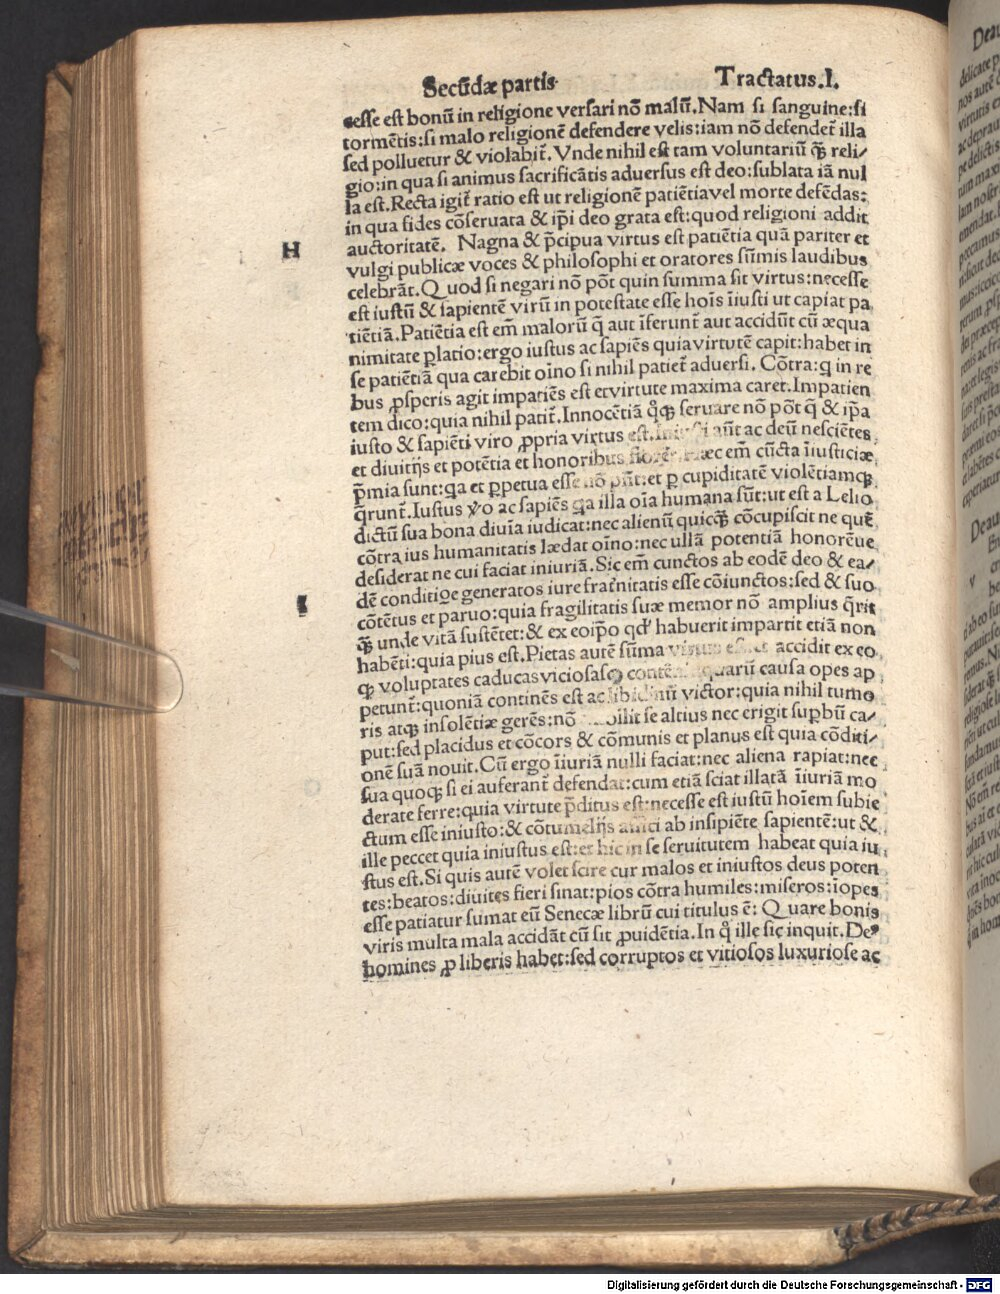 Secūdæ partis Tractatus.I.
cesse est bonū in religione versari nō malū.Nam si sanguine:si
tormētis:si malo religionē defendere velis:iam nō defendet̄ illa
sed polluetur & violabit̄. Vnde nihil est tam voluntariū q̄ꝫ reli/
gio:in qua si animus sacrificātis aduersus est deo:sublata iā nul
la est.Recta igit̄ ratio est ut religionē patiētia vel morte defēdas:
in qua fides cōseruata & ip̄i deo grata est:quod religioni addit
H
auctoritatē. Nagna & p̄cipua virtus est patiētia quā pariter et
vulgi publicæ voces & philosophi et oratores sūmis laudibus
celebrāt.Quod si negari nō pōt quin summa sit virtus:necesse
est iustū & sapientē virū in potestate esse hoīs īiusti ut capiat pa
tiētiā.Patiētia est em̄ malorū q̄ aut īferunt̄ aut accidūt cū æqua
nimitate ꝑlatio:ergo iustus ac sapiēs quia virtutē capit:habet in
se patiētiā qua carebit oīno si nihil patiet̄ aduersi. Cōtra:q in re
bus ꝓsperis agit impatiēs est et virtute maxima caret.Impatien
tem dico:quia nihil patit̄.Innocētiā q̊q̄ꝫ seruare nō pōt q̄ & ip̄a
iusto & sapiēti viro ꝓpria virtus est. aūt ac deū nesciētes
et diuitijs et potētia et honoribus em̄ cūcta īiusticiæ
p̄mia sunt:qa et ꝑpetua esse nō pn̄t:et ꝑ cupiditatē violētiamqꝫ
q̄runt̄.Iustus v̊o ac sapiēs qa illa oīa humana sūt:ut est a Lelio
dictū sua bona diuīa iudicat:nec alienū quicq̄ꝫ cōcupiscit ne quē
cōtra ius humanitatis lædat oīno:nec ullā potentiā honorēue
desiderat ne cui faciat iniuriā.Sic em̄ cunctos ab eodē deo & ea/
I
dē conditiōe generatos iure frat̄nitatis esse cōiunctos:sed & suo
cōtētus et paruo:quia fragilitatis suæ memor nō amplius q̄rit
q̄ꝫ unde vitā sustētet:& ex eo ip̄o qd' habuerit impartit etiā non
habēti:quia pius est.Pietas autē sūma virtus est. accidit ex eo
qꝫ voluptates caducas viciosasqꝫ quarū causa opes ap
petunt̄:quoniā continēs est ac libidinū victor:quia nihil tumo
ris atqꝫ insolētiæ gerēs:nō se altius nec erigit suꝑbū ca/
put:sed placidus et cōcors & cōmunis et planus est quia cōditi/
onē suā nouit.Cū ergo īiuriā nulli faciat:nec aliena rapiat:nec
sua quoqꝫ si ei auferant̄ defendat:cum etiā sciat illatā īiuriā mo
derate ferre:quia virtute p̄ditus est:necesse est iustū hoīem subie
ctum esse iniusto:& cōtumelijs affici ab insipiēte sapientē:ut &
ille peccet quia iniustus est:et hic in se seruitutem habeat quia iu
stus est.Si quis autē volet scire cur malos et iniustos deus poten
tes:beatos:diuites fieri sinat:pios cōtra humiles:miseros:īopes
esse patiatur sumat eū Senecæ librū cui titulus ē: Quare bonis
viris multa mala accidāt cū sit ꝓuidētia.In q̊ ille sic inquit.De⁹
homines ꝓ liberis habet:sed corruptos et vitiosos luxuriose ac
Digitalisierung gefördert durch die Deutsche Forschungsgemeinschaft - DFG